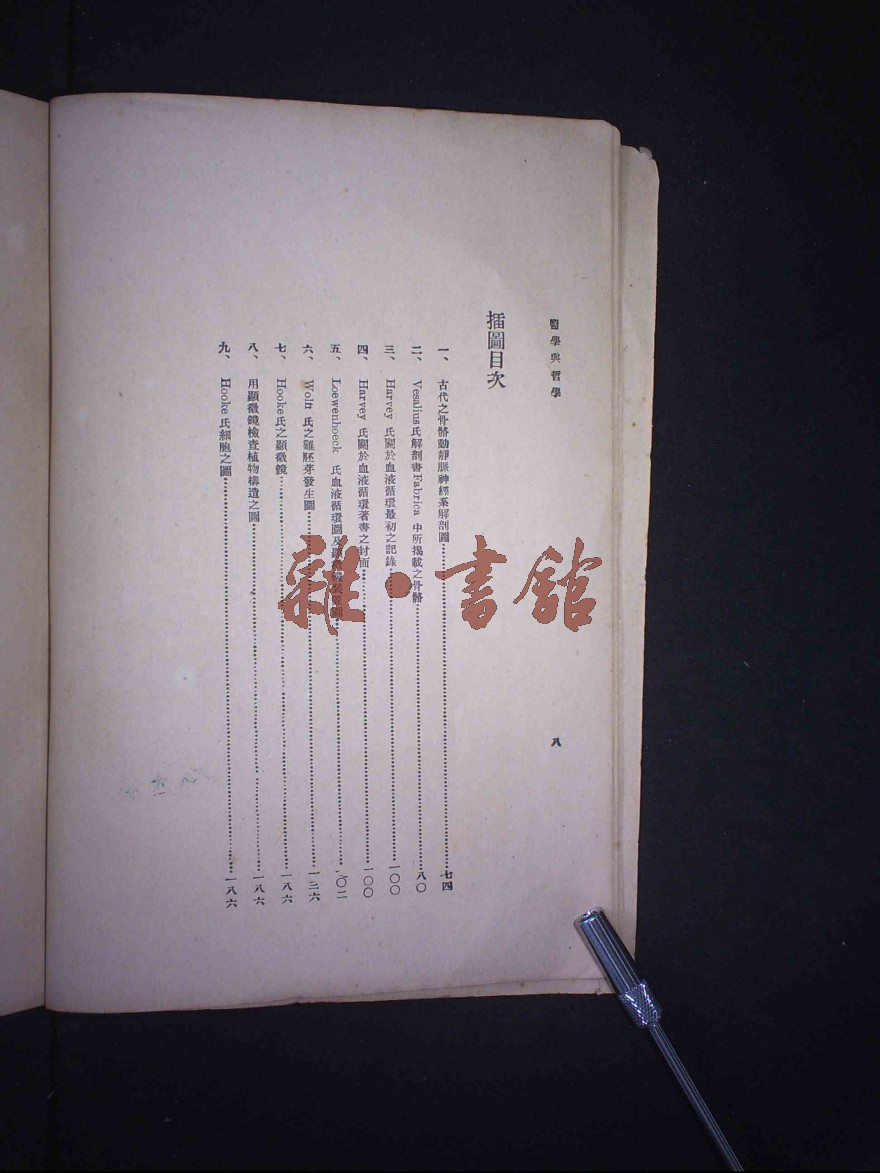 醫學與哲學
八
插圖目次
一、古代之骨骼動靜脈神經系解剖圖……七四
二、Vesalius氏解剖書Fabrica 中所揭載之骨骼……八〇
三、Harvey 氏關於血液循環最初之記錄……一〇〇
四、Harvey 氏關於血液循環著書之封面……一〇〇
五、Loewenhoeck 氏血液循環圖及……一〇二
六、Wolff 氏之雞胚芽發生圖……一三六
七、Hooke氏之顯微鏡……一八六
八、用顯微鏡檢查植物構造之圖……一八六
九、Hooke氏細胞之圖……一八六
雜·書館